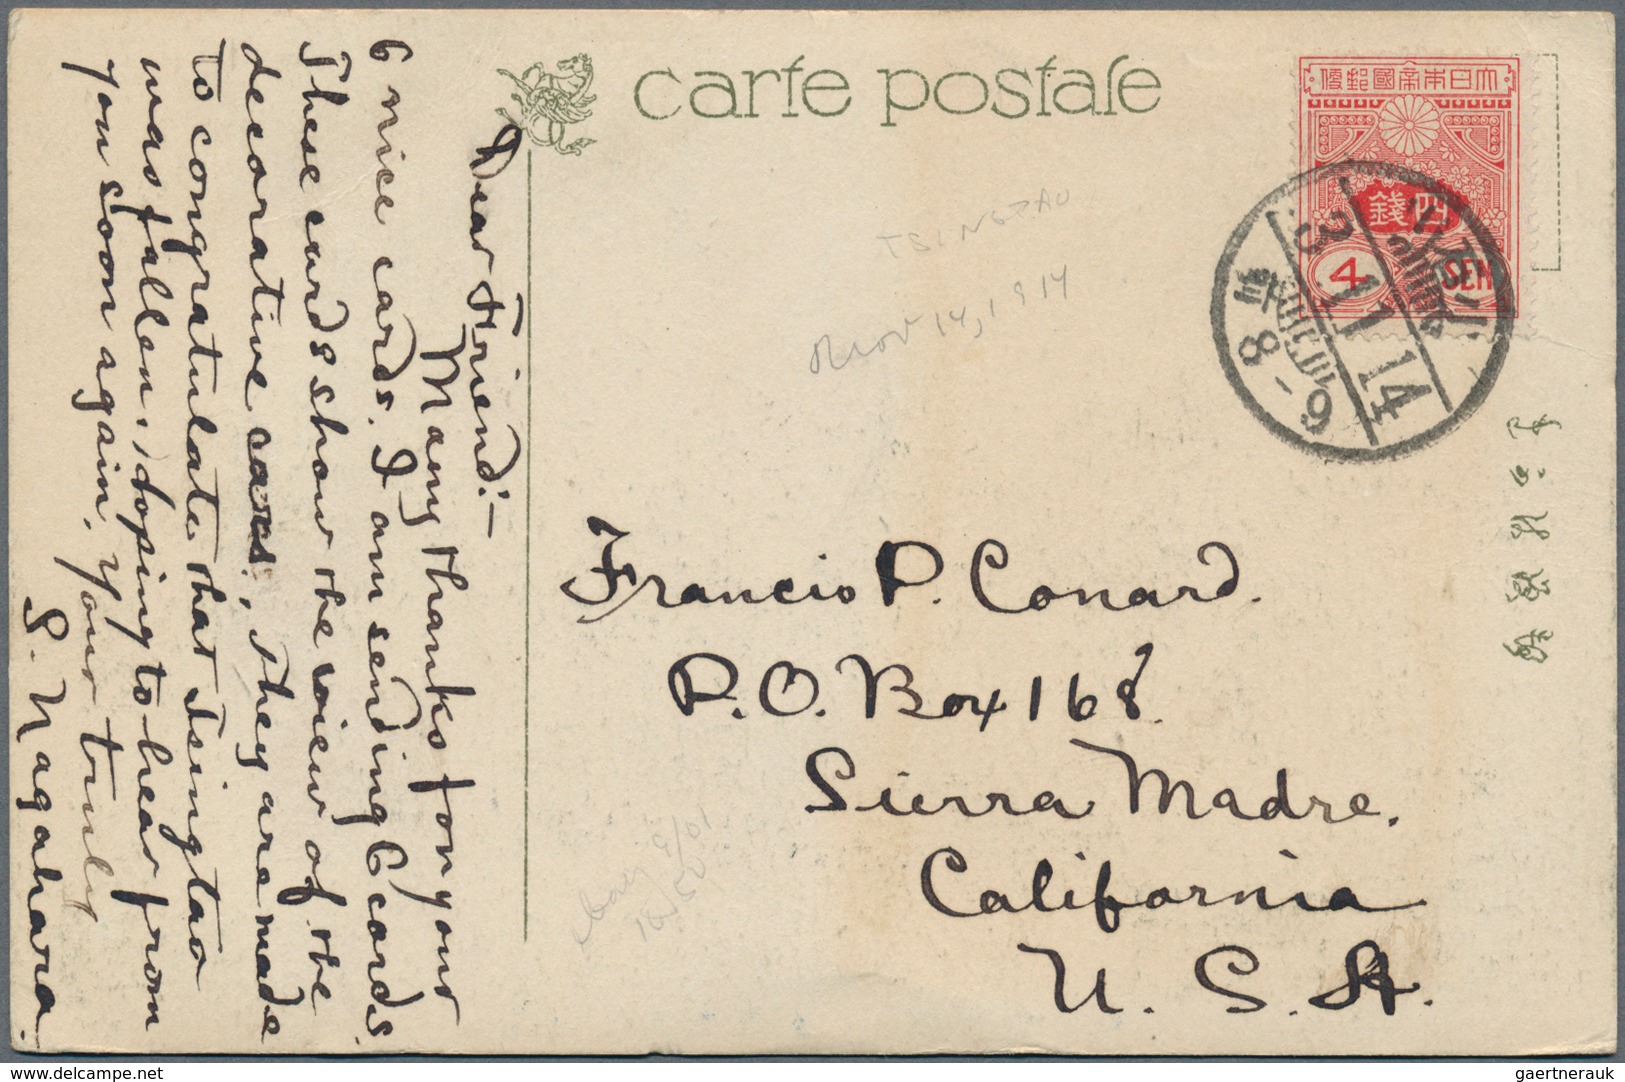 carte postale
大日本帝國郵便
四錢
4 SEN
3 11 14
8-9
TSINGTAO
Nov 14, 1914
Dear Friend:—
Many thanks for your
6 nice cards. I am sending 6 cards.
These cards show the view of the
decorative cars, they are made
to congratulate that Tsingtao
was fallen, hoping to hear from
you soon again, your truly
S. Nagahara.
Francis P. Conard.
P.O. Box 168.
Sierra Madre.
California
U. S. A.
9/01
16.50
gaertnerauk
delcampe.net